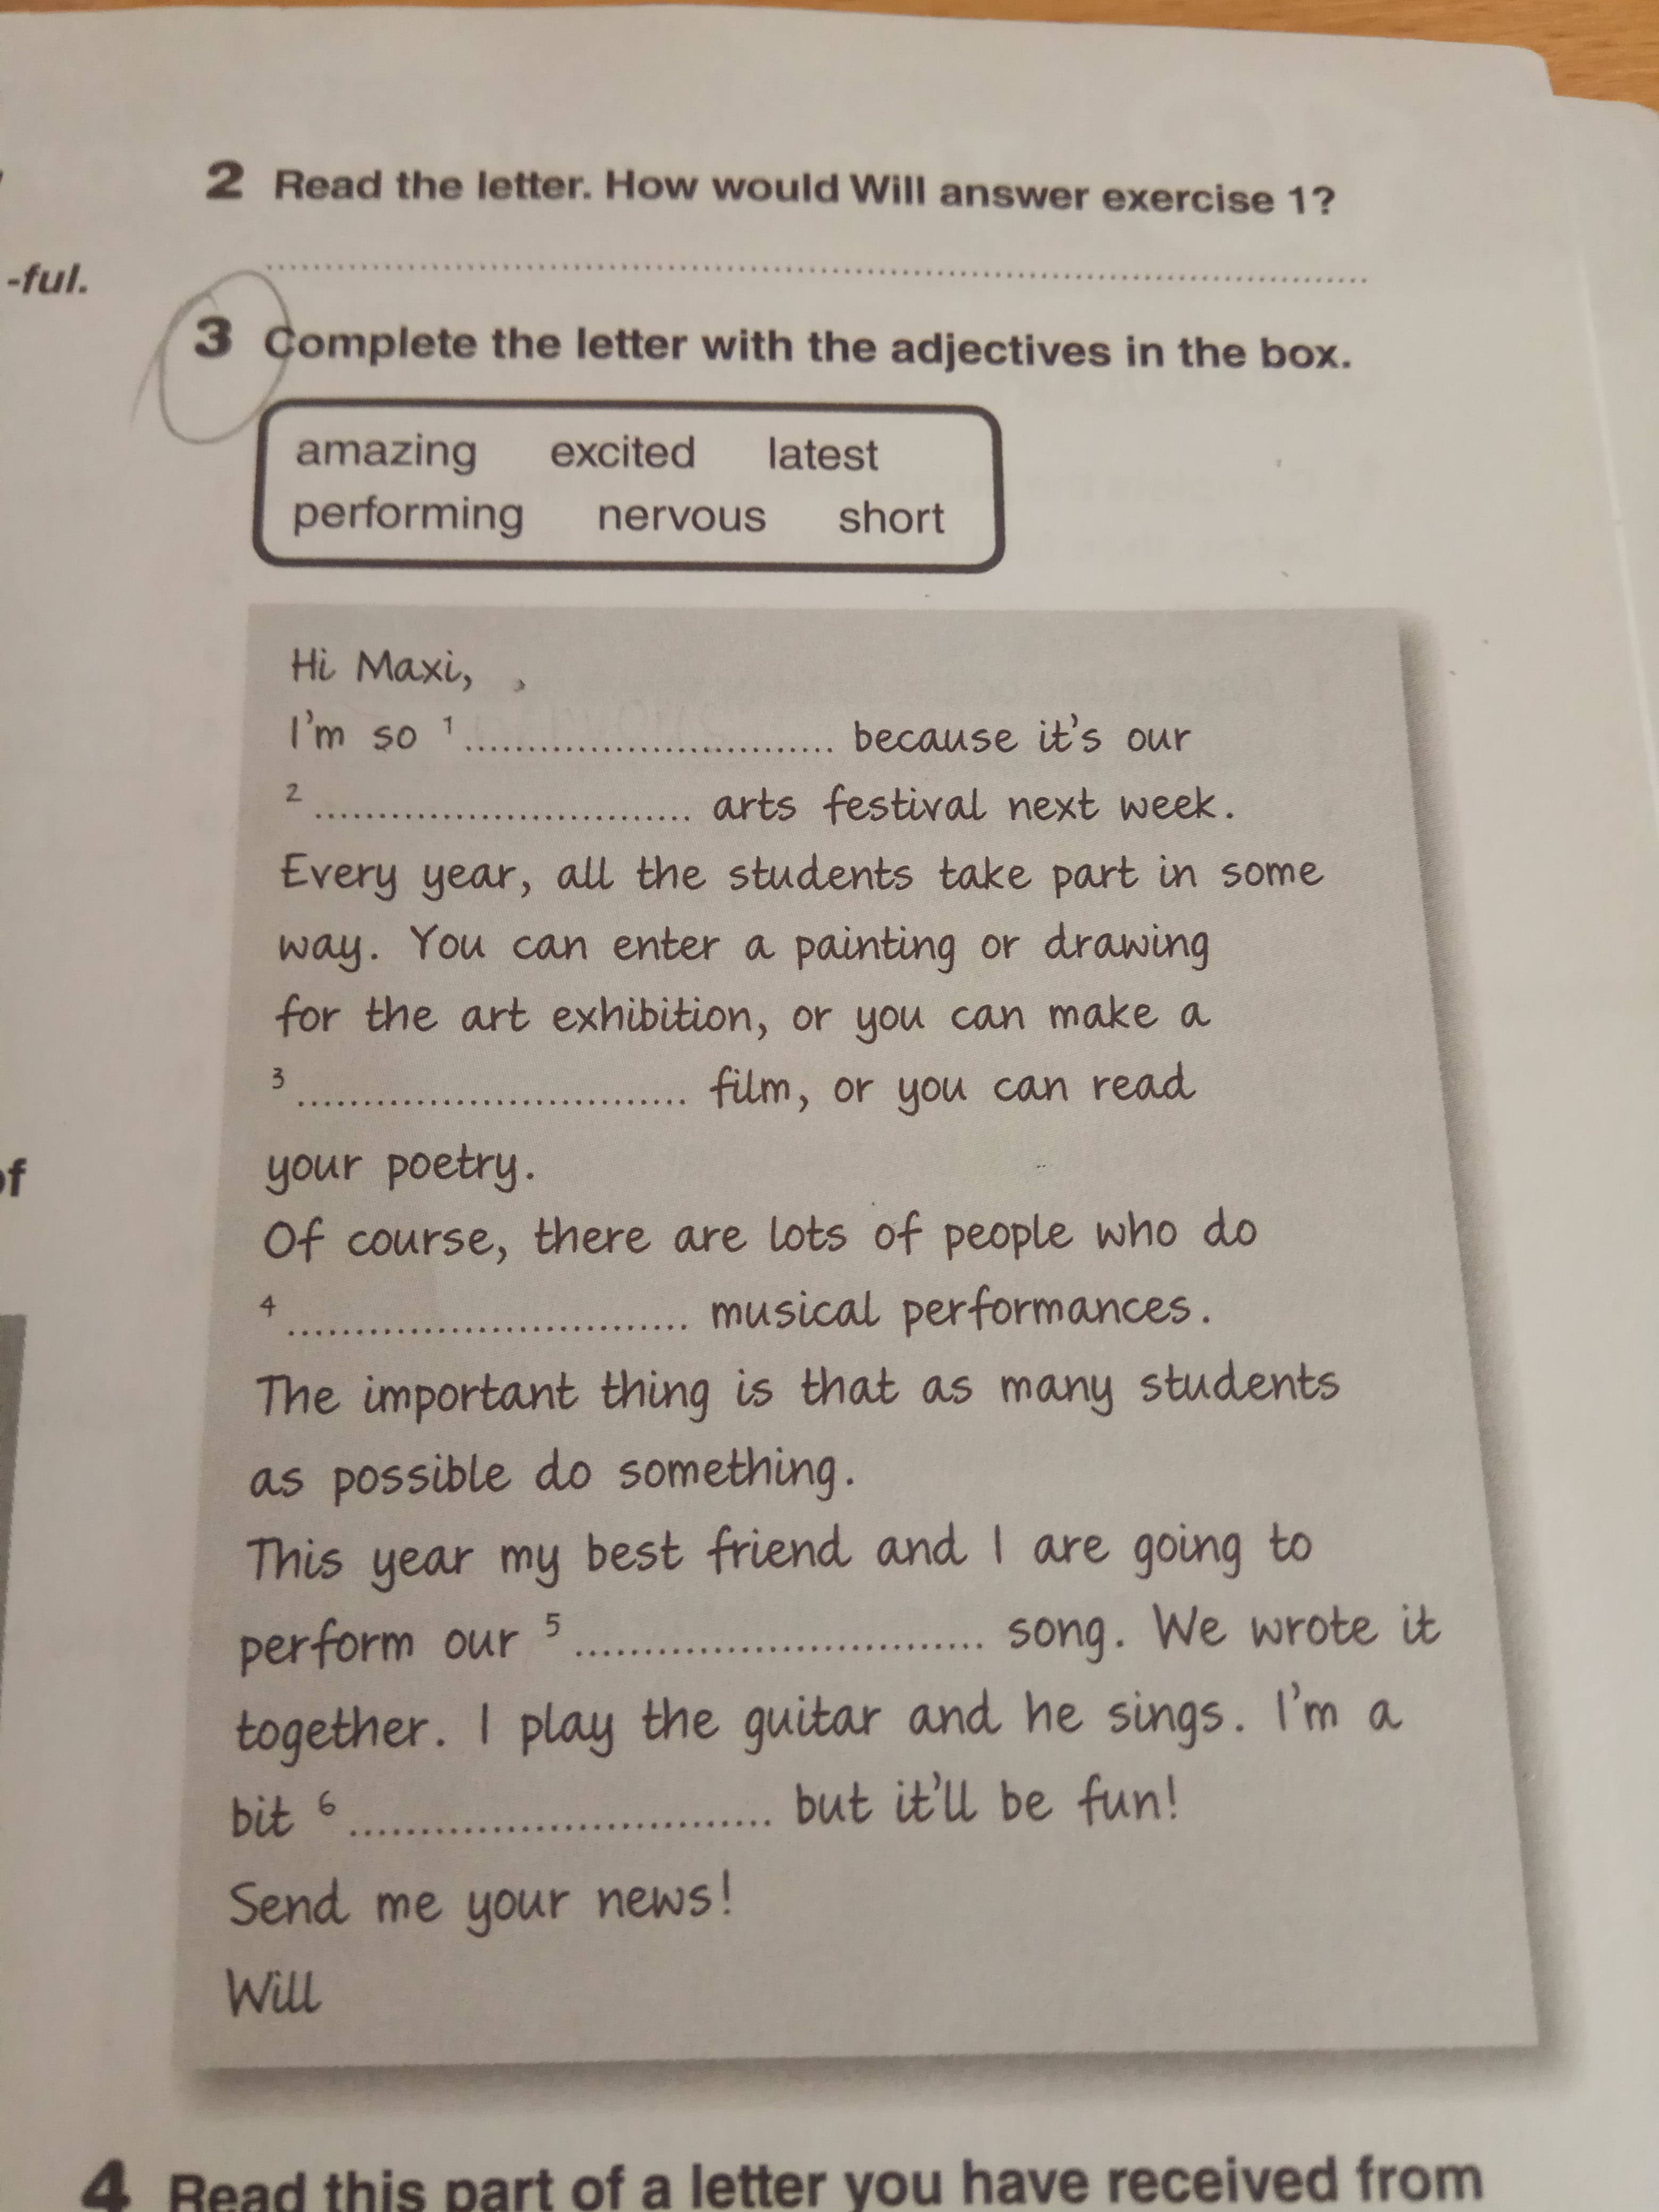 2 Read the letter. How would Will answer exercise 1?
-ful.
3 Complete the letter with the adjectives in the box.
amazing excited latest
performing nervous short
Hi Maxi,
I'm so 1 .............................. because it's our
2 .............................. arts festival next week.
Every year, all the students take part in some
way. You can enter a painting or drawing
for the art exhibition, or you can make a
3 .............................. film, or you can read
your poetry.
Of course, there are lots of people who do
4 .............................. musical performances.
The important thing is that as many students
as possible do something.
This year my best friend and I are going to
perform our 5 .............................. song. We wrote it
together. I play the guitar and he sings. I'm a
bit 6 .............................. but it'll be fun!
Send me your news!
Will
4 Read this part of a letter you have received from